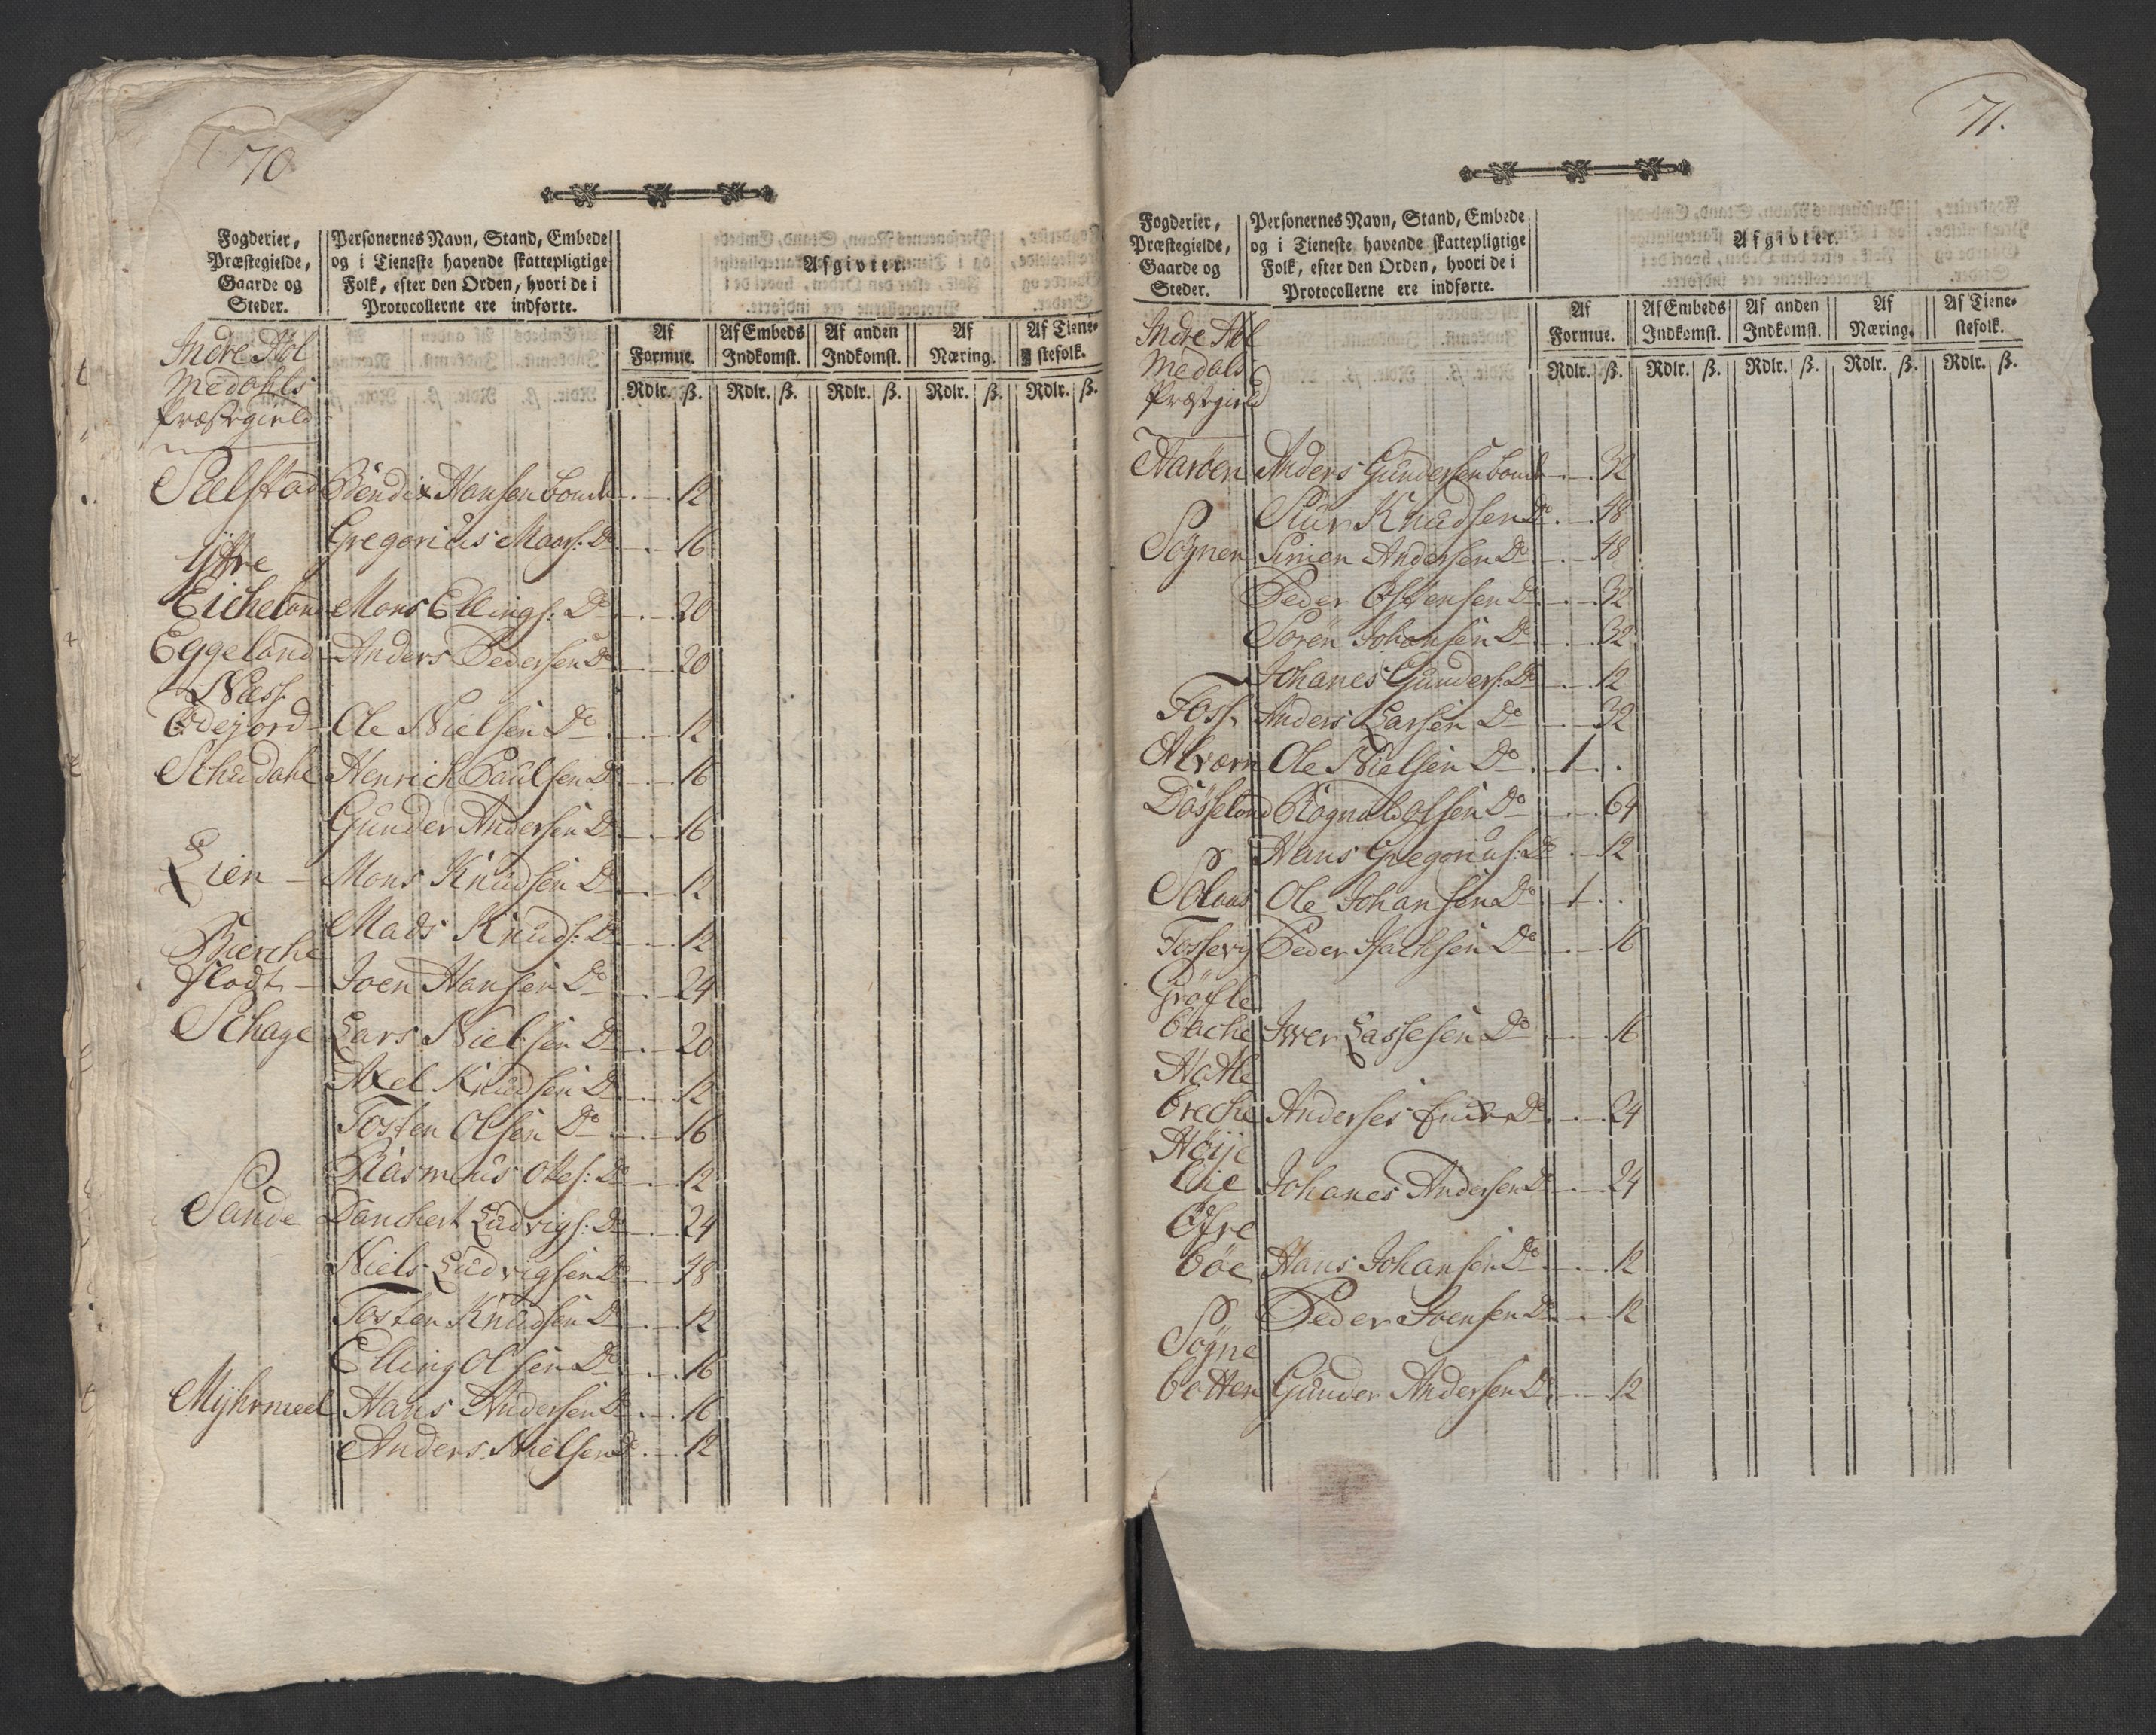 70
Fogderier,
Præstegielde,
Gaarde og
Steder.
Personernes Navn, Stand, Embede
og i Tieneste havende skattepligtige
Folk, efter den Orden, hvori de i
Protocollerne ere indførte.
Afgivter.
Af
Formue.
Af Embeds
Indkomst.
Af anden
Indkomst.
Af
Næring.
Af Tiene-
stefolk.
Rdlr. ß. Rdlr. ß. Rdlr. ß. Rdlr. ß. Rdlr. ß.
Indre Hol
medahls
Præstegield
Sælstad Bendix Hansen bonde 12
Gregorius Mons: Do 16
Ÿttre
Eicheland Mons Ellings: Do 20
Eggeland Anders Pedersen Do 20
Næss
Ødejord Ole Nielsen Do 12
Schudahl Henrich Paulsen Do 16
Gunder Andersen Do 16
Lien Mons Knudsen Do 12
Mads Knuds: Do 12
Bierche
flodt Joen Hansen Do 24
Schage Lars Nielsen Do 20
Axel Knudsen Do 12
Tosten Olsen Do 16
Rasmus Oles: Do 12
Sande Danchert Ludvigs: Do 24
Niels Ludvigsen Do 48
Tosten Knudsen Do 12
Elling Olsen Do 16
Myhrmeel Hans Andersen Do 16
Anders Nielsen Do 12
71.
Fogderier,
Præstegielde,
Gaarde og
Steder.
Personernes Navn, Stand, Embede
og i Tieneste havende skattepligtige
Folk, efter den Orden, hvori de i
Protocollerne ere indførte.
Afgivter.
Af
Formue.
Af Embeds
Indkomst.
Af anden
Indkomst.
Af
Næring.
Af Tiene-
stefolk.
Rdlr. ß. Rdlr. ß. Rdlr. ß. Rdlr. ß. Rdlr. ß.
Indre Hol
medals
Præstgield
Aarøen Anders Gundersen bonde 32
Siur Knudsen Do 48
Søgnen Simen Andersen Do 48
Peder Østensen Do 32
Søren Johansen Do 32
Johanes Gunders: Do 12
Foss Anders Larsen Do 32
Alværn Ole Nielsen Do 1
Døsseland Rognald Olsen Do 64
Hans Gregorius: Do 12
Solaas Ole Johansen Do 1
Fossevig Peder Isachsen Do 16
Grøfle
bache Iver Lassesen Do 16
Hatle
breche Anderses Do 24
Høije
lie Johanes Andersen Do 24
Øfre
bøe Hans Johansen Do 12
Peder Joensen Do 12
Søgne
botten Gunder Andersen Do 12